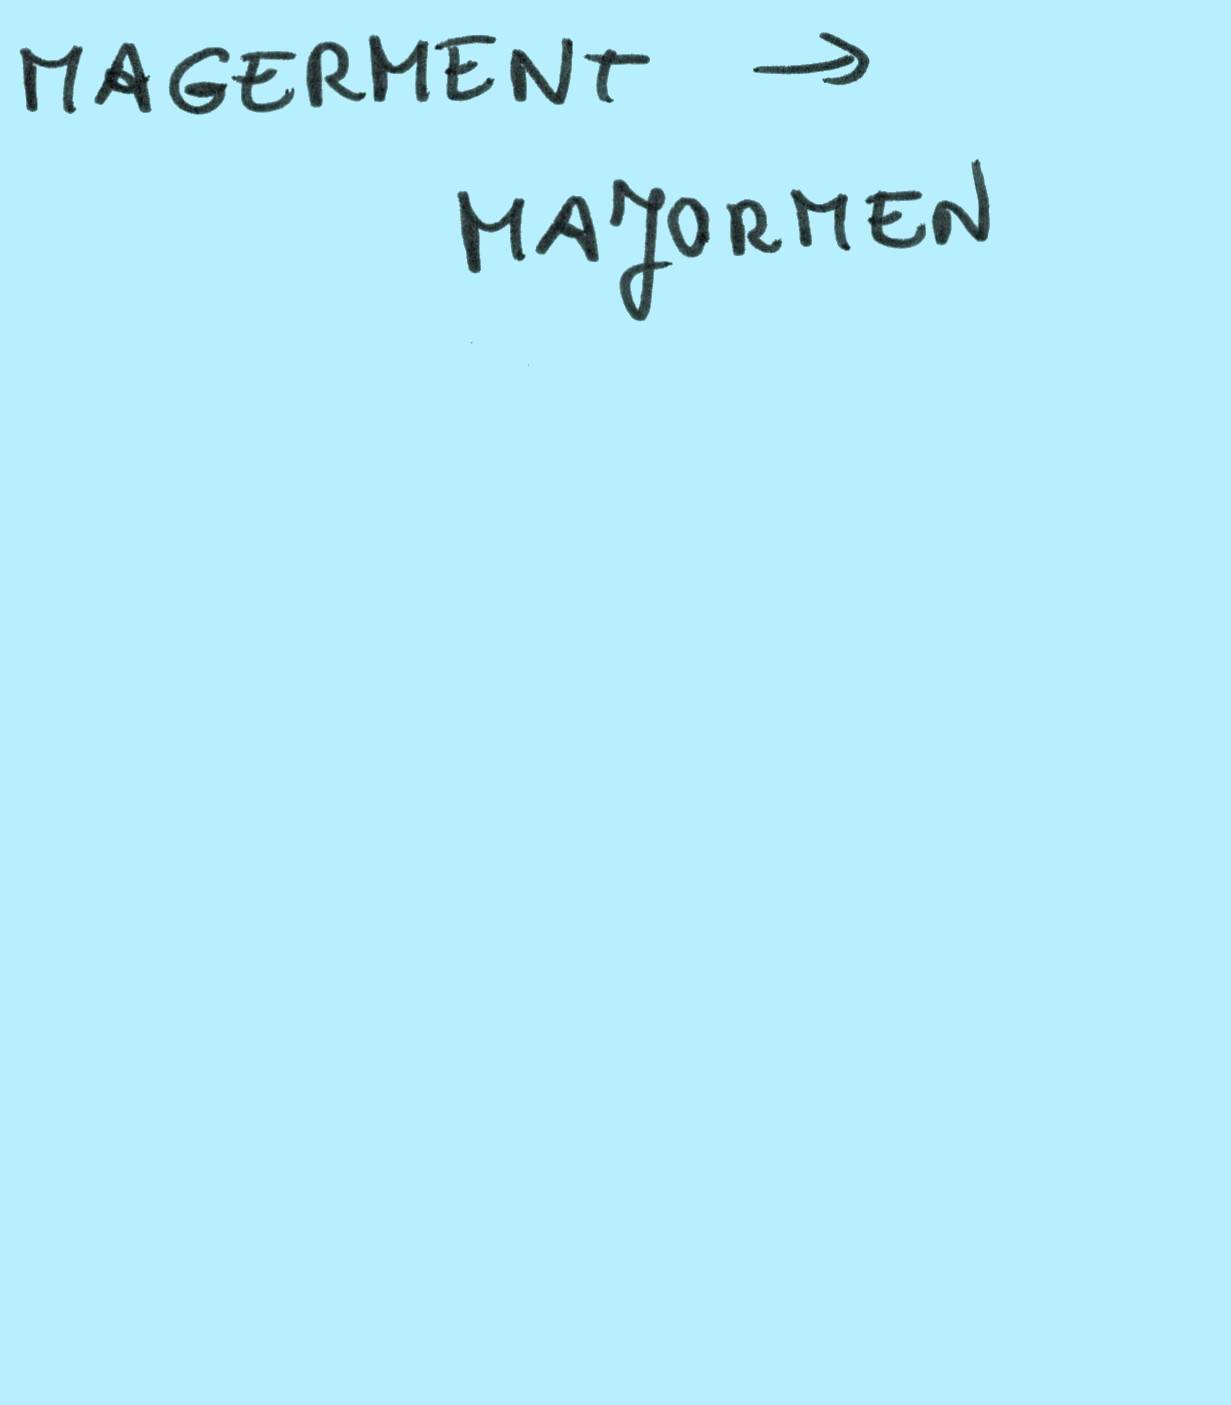 MAGERMENT →
MAJORMEN